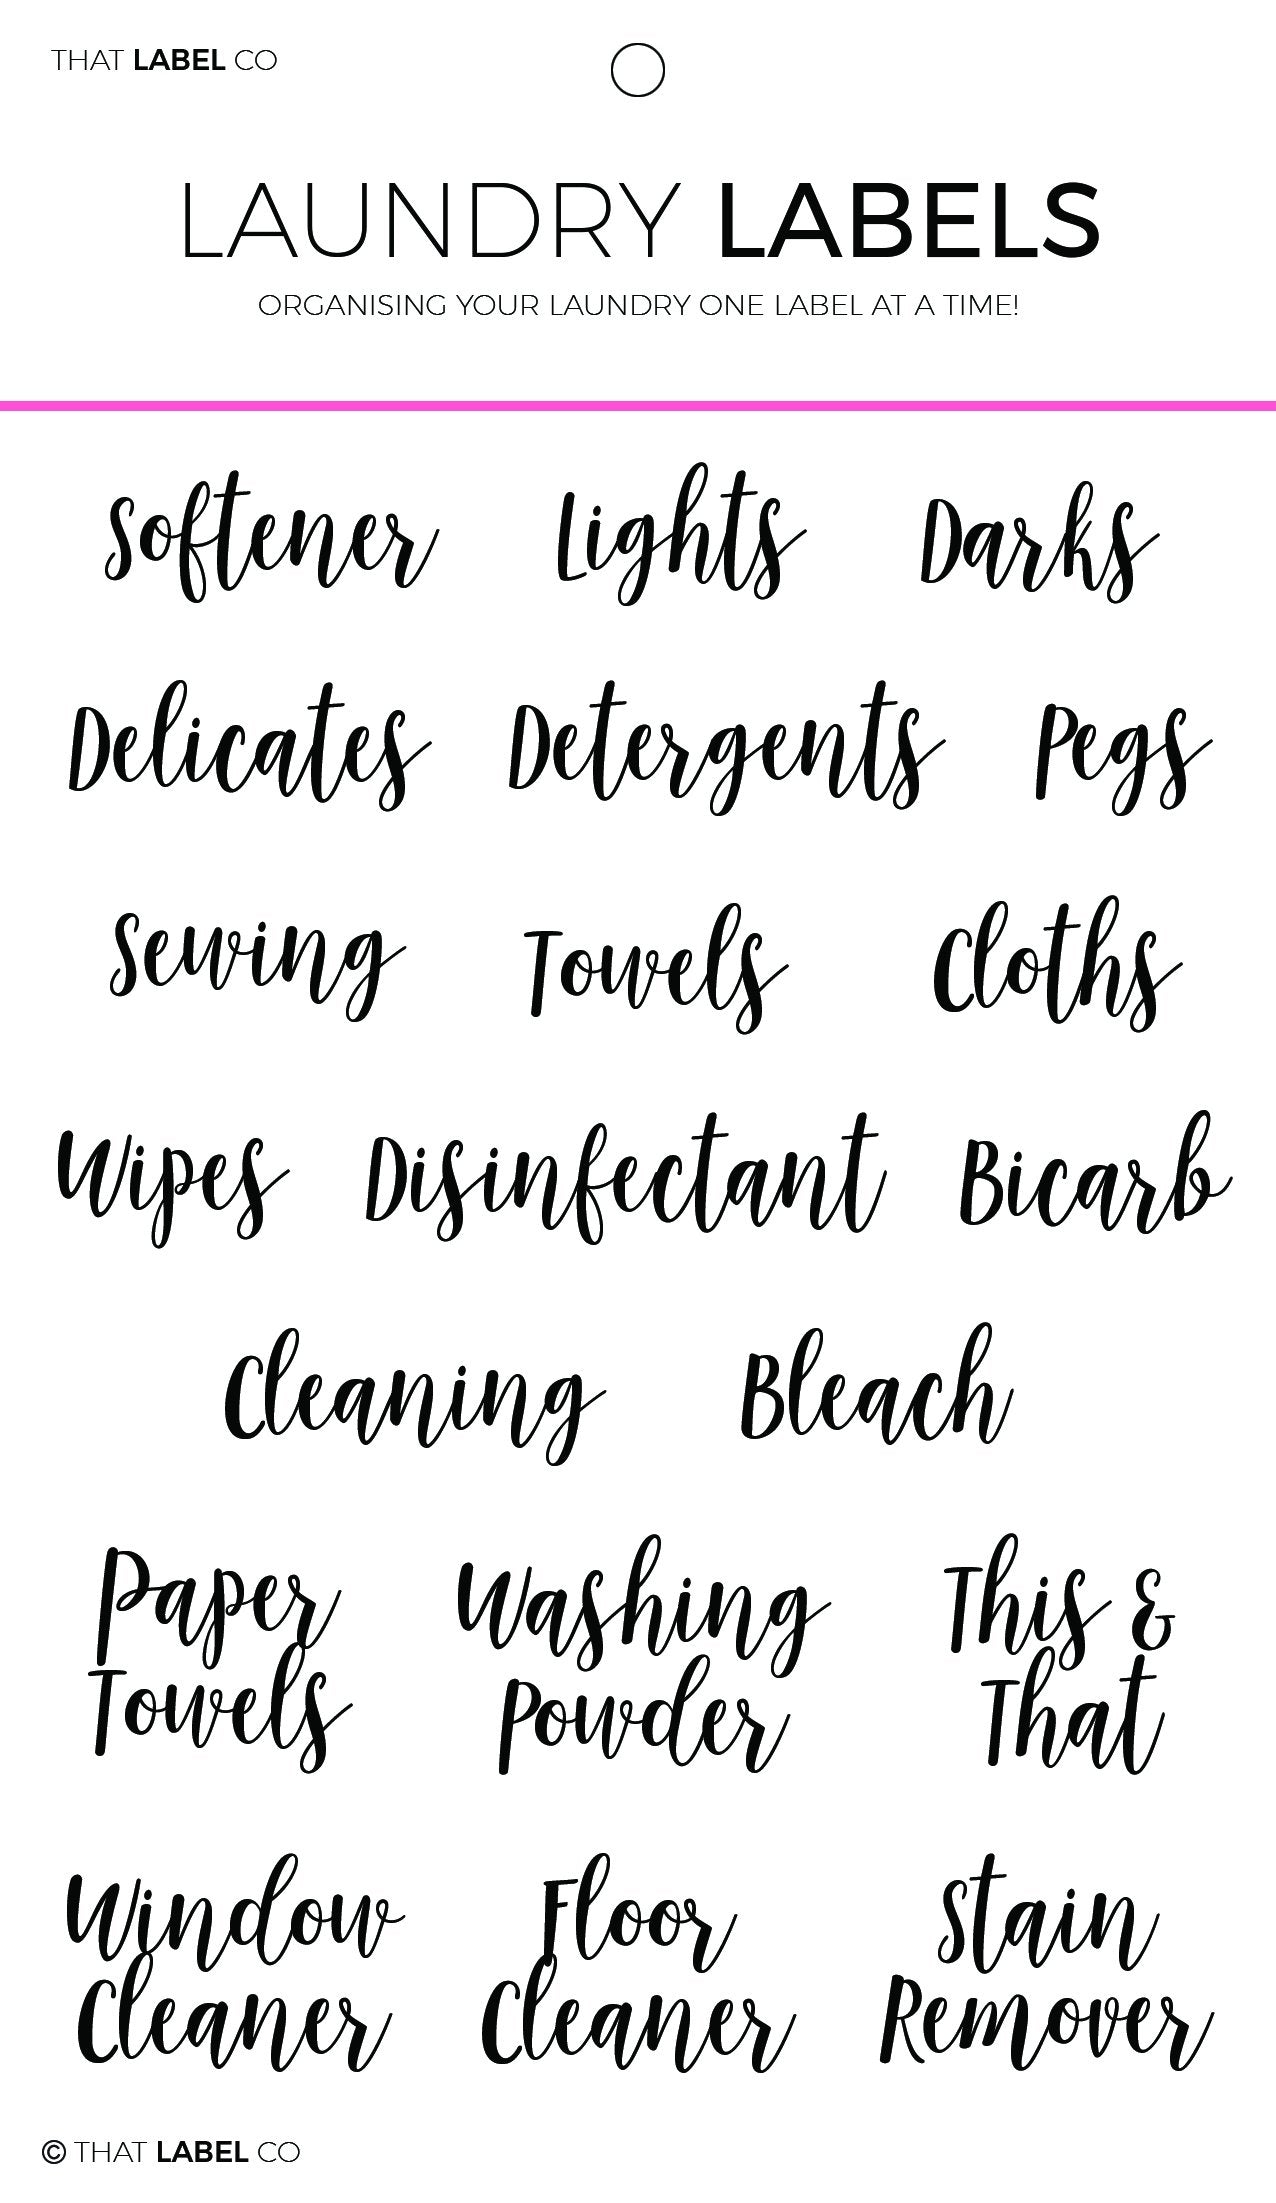 THAT LABEL CO
LAUNDRY LABELS
ORGANISING YOUR LAUNDRY ONE LABEL AT A TIME!
Softener Lights Darks
Delicates Detergents Pegs
Sewing Towels Cloths
Wipes Disinfectant Bicarb
Cleaning Bleach
Paper Washing This &
Towels Powder That
Window Floor Stain
Cleaner Cleaner Remover
© THAT LABEL CO